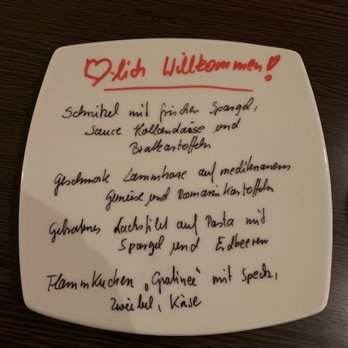 ♡-lich Willkommen!
Schnitzel mit frischen Spargel,
Sauce Hollandaise und
Bratkartoffeln
Geschmorte Lammhaxe auf mediterranem
Gemüse und Rosmarinkartoffeln
Gebratenes Lachsfilet auf Pasta mit
Spargel und Erdbeeren
Flammkuchen „Gratinee" mit Speck,
Zwiebel, Käse